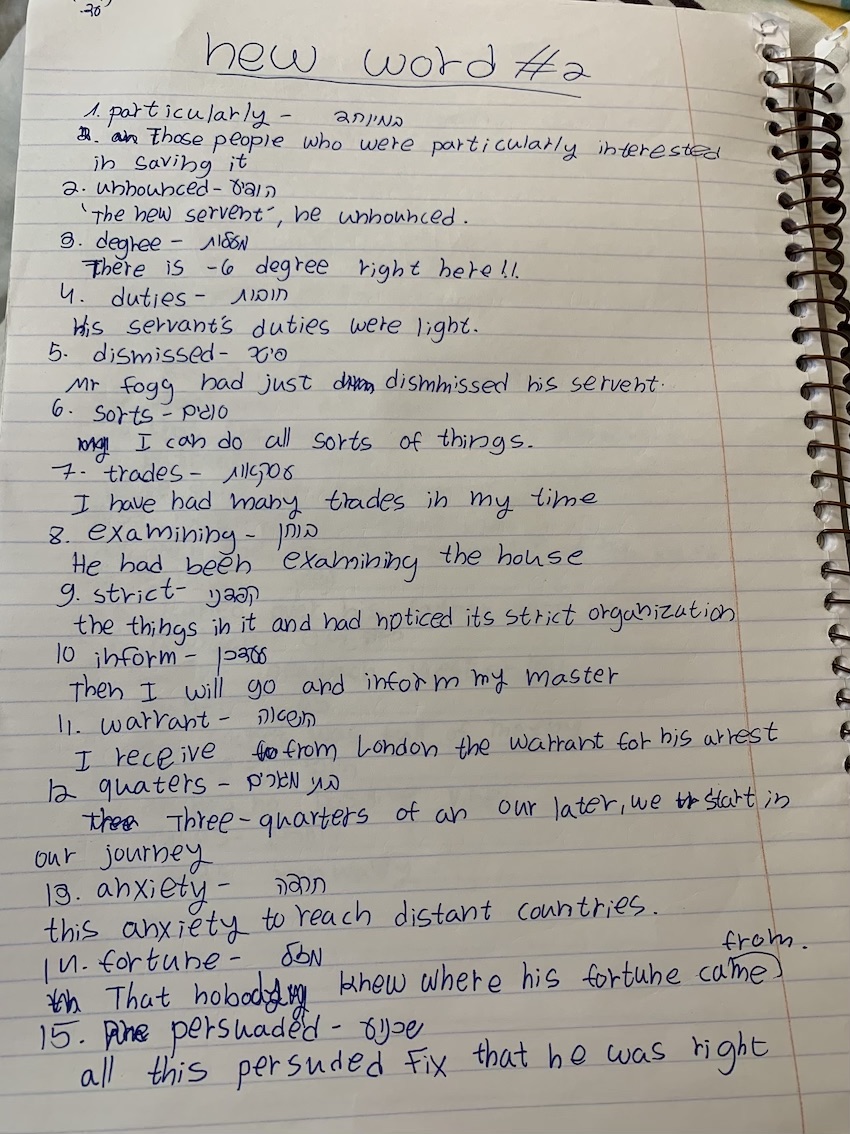 30.
new word #2
1. particularly - במיוחד
2. Those people who were particularly interested
in saving it
2. unnounced - הוביס
'The new servent', he unnounced.
3. degree - מעלות
There is -6 degree right here!!
4. duties - חובות
His servant's duties were light.
5. dismissed - פיטר
Mr fogg had just dismmissed his servent.
6. sorts - סוגים
I can do all sorts of things.
7. trades - עסקאות
I have had many trades in my time
8. examining - בוחן
He had been examining the house
9. strict - קפדני
the things in it and had noticed its strict organization
10 inform - מעדכן
Then I will go and inform my master
11. warrant -
I receive from London the warrant for his arrest
12 quaters -
Three-quarters of an our later, we start in
our journey
13. anxiety - חרדה
this anxiety to reach distant countries.
14. fortune - מזל
from.
That nobody knew where his fortune came
15. persuaded - שכנע
all this persuded Fix that he was right